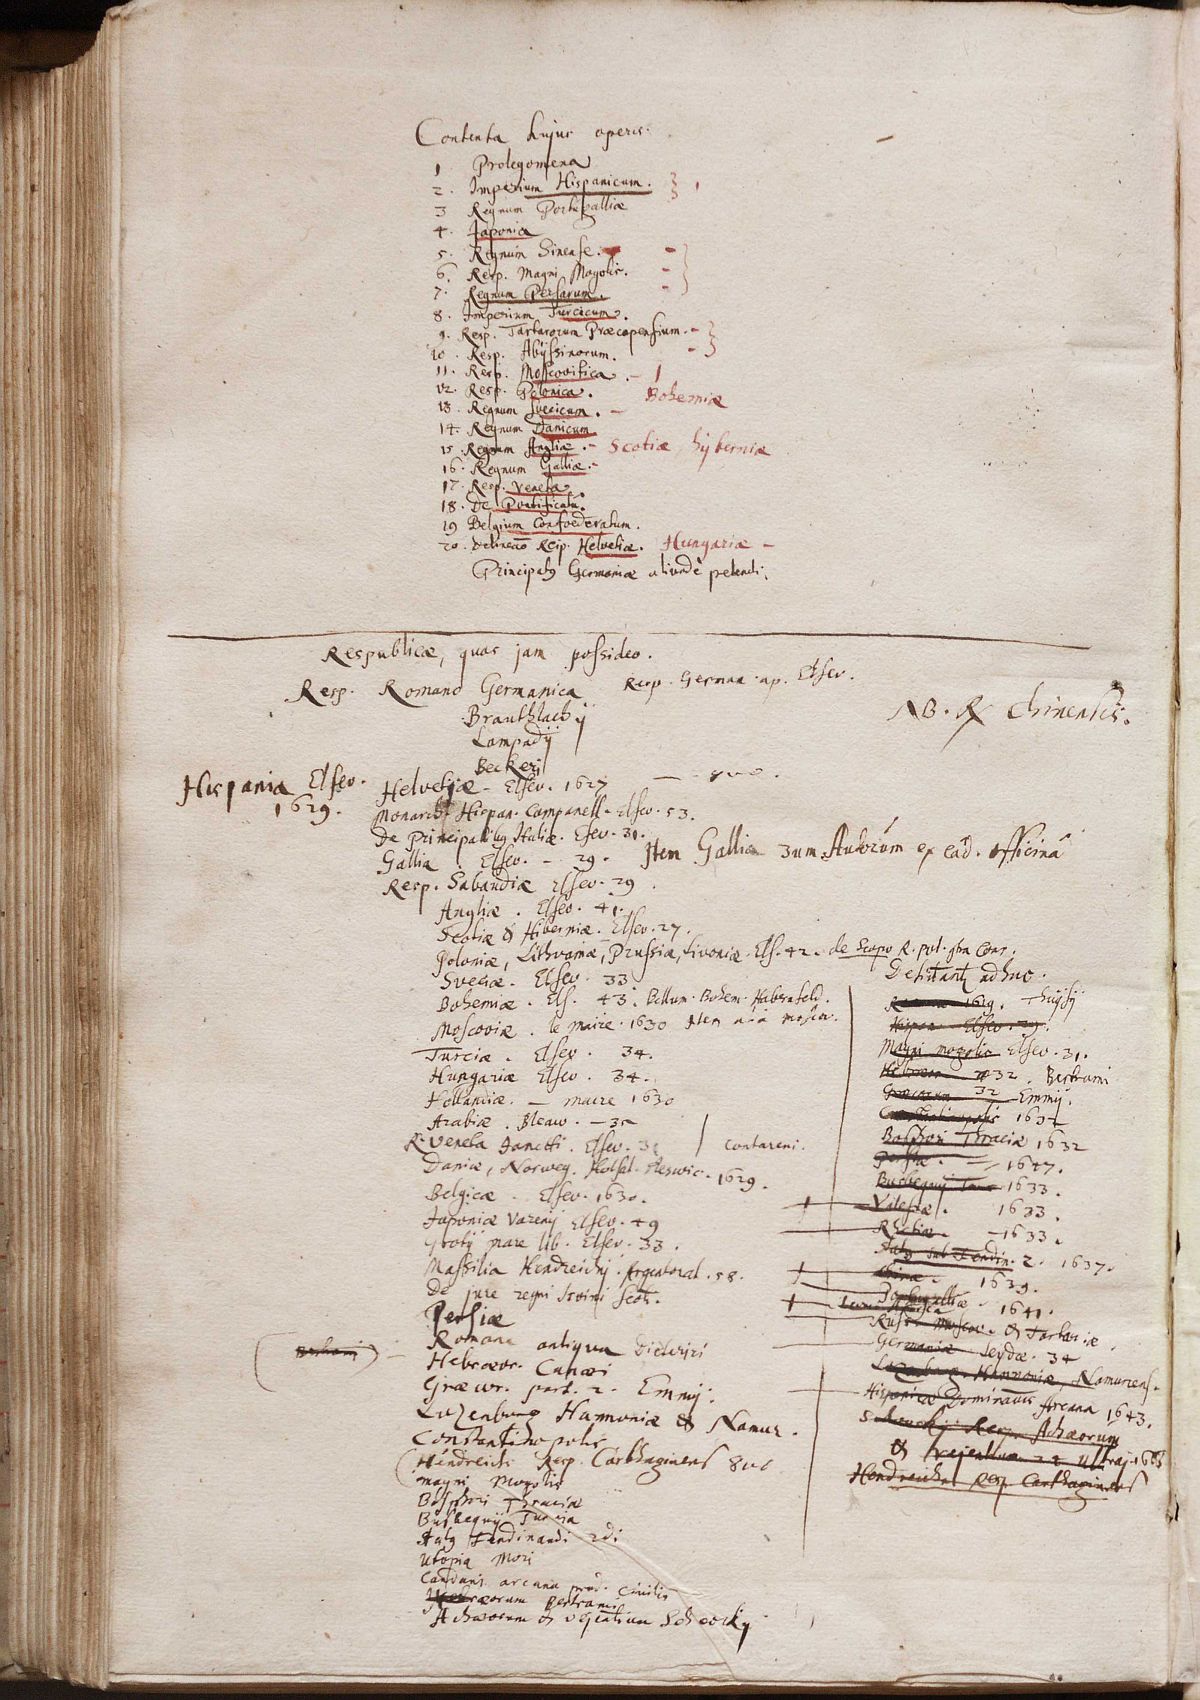 Contenta hujus operis.
1 Prolegomena
2. Imperium Hispanicum.
3 Regnum Portugalliæ
4. Japonia
5. Regnum Sinense.
6. Resp. Magni Mogolis.
7. Regnum Persarum.
8. Imperium Turcicum.
9. Resp. Tartarorum Præcopensium.
10. Resp. Abyssinorum.
11. Resp. Moscovitica.
12. Resp. Polonica. Bohemiæ
13. Regnum Suecicum.
14. Regnum Danicum
15. Regnum Angliæ. Scotiæ, hyberniæ
16. Regnum Galliæ.
17. Resp. Veneta.
18. De Pontificatu.
19 Belgium Confoederatum.
20. Resp. Helvetiæ. Hungariæ
Principatus Germaniæ aliunde petendi.
Respublicæ, quas jam possideo.
Resp. Romano Germanica Resp. German. ap. Elsev.
NB. R Chinensis.
Brautlachij
Lampadij
Beckeri
Hispania Elsev.
1629.
Helvetiæ - Elsev. 1627
Monarch. Hispan. Campanell. Elsev. 53.
De Principatibus Italiæ. Elsev. 31.
Gallia. Elsev. - 29. Item Gallia Autorum ex ead. officina
Resp. Sabaudiæ Elsev. 29.
Angliæ. Elsev. 41.
Scotiæ & Hiberniæ. Elsev. 27.
Poloniæ, Lithvaniæ, Prussiæ, Livoniæ. Els. 42. de Scopo R. pol.
Sveciæ. Elsev. 33
Bohemiæ. Els. 43. Bellum. Bohem. Habernfeld.
Moscoviæ. le maire. 1630 Item
Turciæ. Elsev. 34.
Hungariæ Elsev. 34.
Hollandiæ. - maire 1630
Arabiæ. Bleau.
R. Veneta Janotti. Elsev. Contareni.
Daniæ, Norweg. Holsat. Sleswic. 1629.
Belgicæ. Elsev. 1630.
Japoniæ Varenij Elsev. 49
Grotij mare lib. Elsev. 33.
Massilia Hendreichij. Argentorat. 58.
De jure regni Scot.
Persiæ
Romana antiqua
Hebræor. Cunæi
Græcor. part. 2. Emmij.
Luzenburg Hannoniæ & Namur.
Constantinopolis
Hendreichi Resp. Carthaginens
Magni Mogolis
Bosphori Thraciæ
Busbequij Turcia
Ferdinandi 2di
Utopia Mori
arcana civilis
Hebræorum Bertrami
Achæorum & Vejentium Schoockij
Desiderantur adhuc.
1629.
Hispan. Elsev. 29.
Magni mogolis Elsev. 31.
Hebræor. 32. Bertrami
Græcorum 32 Emmij.
Constantinopolis 1632
Bosphori Thraciæ 1632
Persiæ. - 1647.
Busbequij Turc. 1633.
Valesiæ. 1633.
Rhetiæ. - 1633.
sub Ferdin. 2. 1637.
China - 1639.
Portugalliæ - 1641.
Russ. Moscov. & Tartariæ
Germaniæ Leydæ. 34
Luzenburg. Hannoniæ, Namurens.
Hispanicæ Dominationis Arcana 1643.
Schoockij Resp. Achæorum
& Vejentium
Hendreichi Resp. Carthaginens